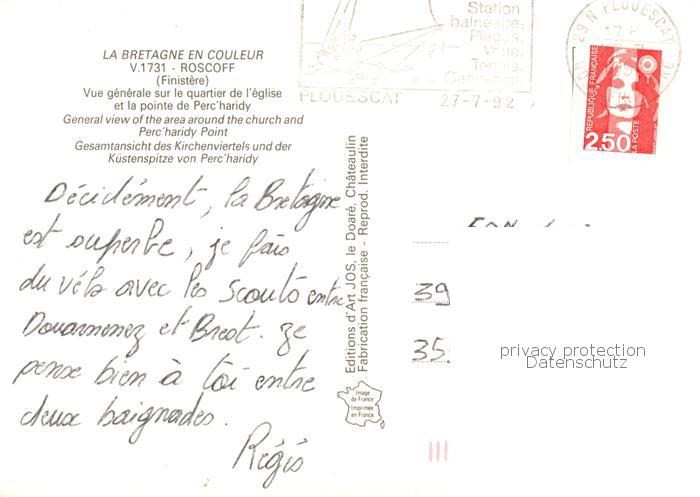 LA BRETAGNE EN COULEUR
V.1731 - ROSCOFF
(Finistère)
Vue générale sur le quartier de l'église
et la pointe de Perc'haridy
General view of the area around the church and
Perc'haridy Point
Gesamtansicht des Kirchenviertels und der
Küstenspitze von Perc'haridy
Décidément, la Bretagne
est superbe, je fais
du vélo avec les scouts entre
Douarnenez et Brest. Je
pense bien à toi entre
deux baignades.
Régis
Editions d'Art JOS, le Doaré, Châteaulin
Fabrication française - Reprod. Interdite
Image
de France
Imprimée
en France
Station
balnéaire.
Plages.
Voile.
Tennis.
Camping.
PLOUESCAT 27-7-92
29 N PLOUESCAT
17 H
REPUBLIQUE FRANÇAISE
2,50
LA POSTE
39
35.
privacy protection
Datenschutz